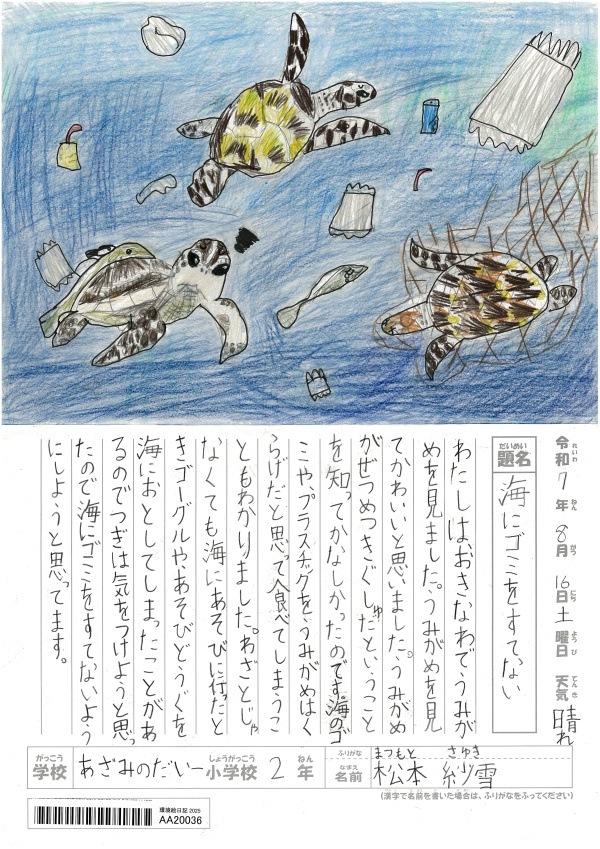 令和7年8月16日土曜日 天気 晴れ
れいわ ねん がつ にち ようび てんき
だいめい
題名 海にゴミをすてない
わたしは、おきなわでうみが
めを見ました。うみがめを見
てかわいいと思いました。うみがめ
がぜつめつきぐしゅだということ
を知ってかなしかったのです。海のゴ
ミや、プラスチックを、うみがめはく
らげだと思って食べてしまうこ
ともわかりました。わざとじゃ
なくても海にあそびに行ったと
きゴーグルや、あそびどうぐを
海におとしてしまったことがあ
るのでつぎは気をつけようと思っ
たので海にゴミをすてないよう
にしようと思ってます。
がっこう しょうがっこう ねん
学校 あざみのだい一小学校 2年
ふりがな まつもと さゆき
なまえ
名前 松本 紗雪
(漢字で名前を書いた場合は、ふりがなをふってください)
環境絵日記 2025
AA20036